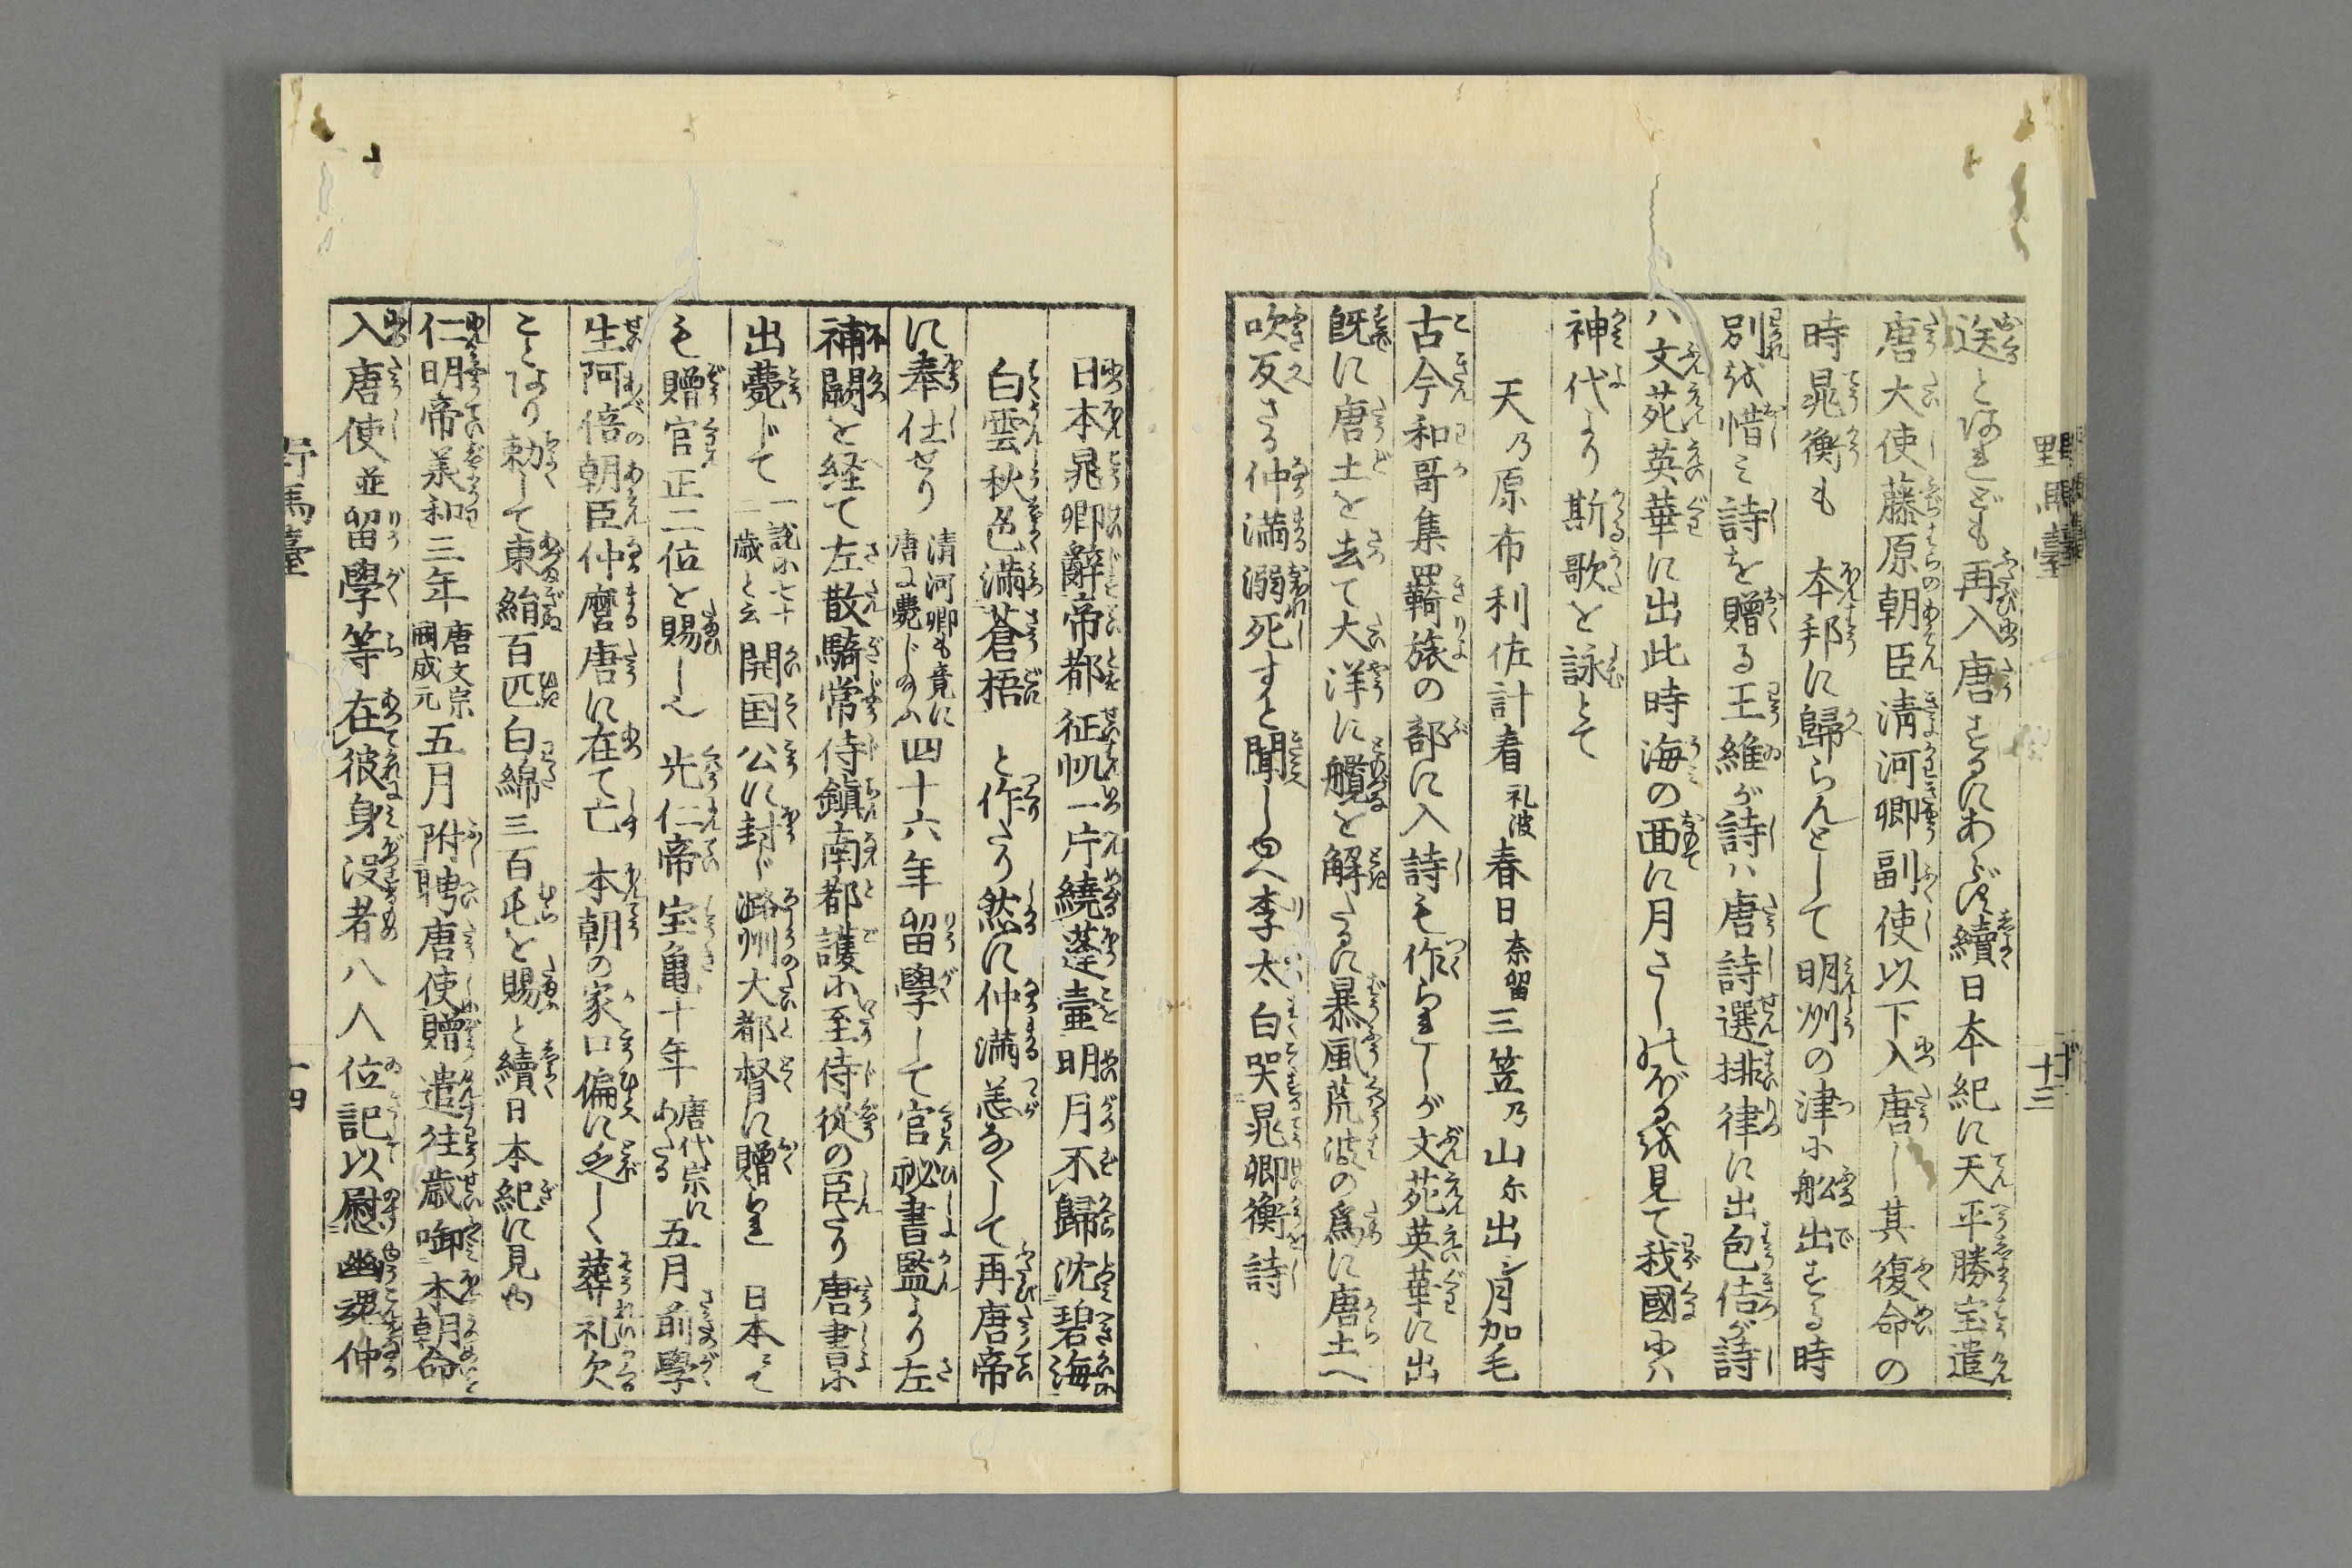 送とあれども再入唐するにあらず續日本紀に天平勝宝遣
唐大使藤原朝臣清河卿副使以下入唐し其復命の
時晁衡も 本邦に歸らんとして明州の津に舩出する時
別を惜み詩を贈る王維が詩ハ唐詩選排律に出包佶が詩
ハ文苑英華に出此時海の面に月さしのぼるを見て我國にハ
神代より斯歌を詠とて
天乃原布利佐計看礼波春日奈留三笠乃山尓出シ月加毛
古今和哥集羇旅の部に入詩も作られしが文苑英華に出
既に唐土を去て大洋に艫を解たるに暴風荒波の為に唐土へ
吹反さる仲満溺死すと聞しゆへ李太白哭晁卿衡詩
野馬臺
十三
日本晁卿辭帝都征帆一片繞蓬壺明月不歸沈碧海
白雲秋色滿蒼梧 と作たり然に仲満恙なくして再唐帝
に奉仕せり清河卿も竟に唐に薨じ給ふ四十六年留學して官祕書監より左
補闕を経て左散騎常侍鎮南都護に至侍從の臣たり唐書に
出薨じて一説に七十二歳と云開国公に封じ潞州大都督に贈らる 日本にて
も贈官正二位を賜し也 光仁帝宝亀十年唐代宗にあたる五月前學
生阿倍朝臣仲麿唐に在て亡 本朝の家口偏に乏しく葬礼欠
ことあり勅して東絹百匹白綿三百屯を賜と續日本紀に見ゆ
仁明帝義和三年唐文宗開成元五月附聘唐使贈遣往歳啣本朝命
入唐使並留學等在彼身没者八人位記以慰幽魂仲
野馬臺
十四